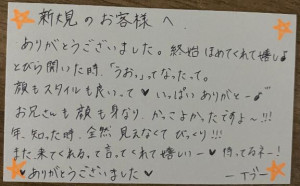 新規のお客様へ
ありがとうございました。終始ほめてくれて嬉し♪
とびら開いた時、「うおっ」ってなったって。
顔もスタイルも良いって♥いっぱいありがとー♪
お兄さんも顔も身なり、かっこよかたですよ〜!!!
年、知った時、全然見えなくてびっくり!!!
また来てくれるって言ってくれて嬉しいー♥待ってるネー!
♥ありがとうございました♥